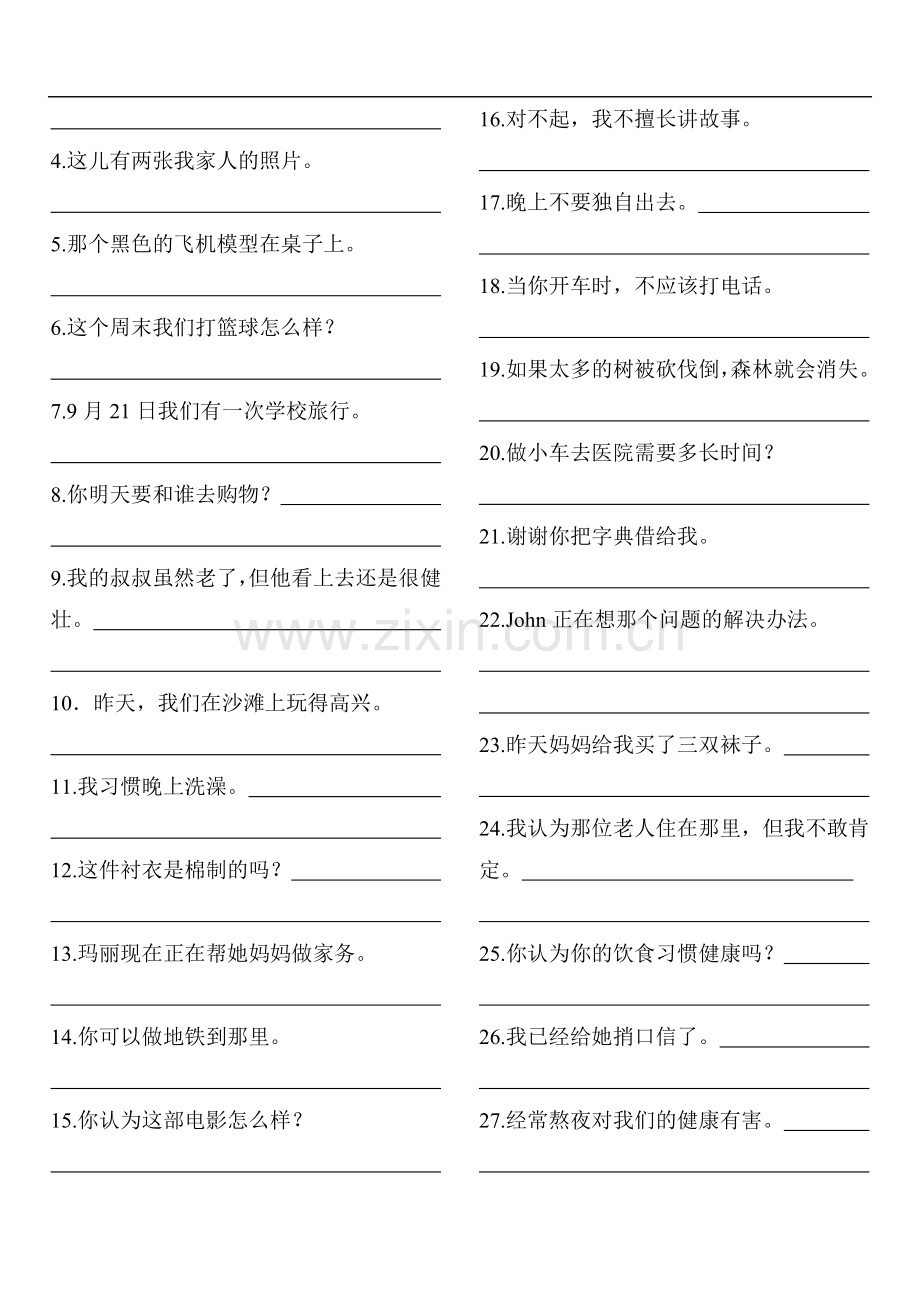 4.这儿有两张我家人的照片。
5.那个黑色的飞机模型在桌子上。
6.这个周末我们打篮球怎么样？
7.9 月 21 日我们有一次学校旅行。
8.你明天要和谁去购物？
9.我的叔叔虽然老了，但他看上去还是很健
壮。
10．昨天，我们在沙滩上玩得高兴。
11.我习惯晚上洗澡。
12.这件衬衣是棉制的吗？
13.玛丽现在正在帮她妈妈做家务。
14.你可以做地铁到那里。
15.你认为这部电影怎么样？
16.对不起，我不擅长讲故事。
17.晚上不要独自出去。
18.当你开车时，不应该打电话。
19.如果太多的树被砍伐倒，森林就会消失。
20.做小车去医院需要多长时间？
21.谢谢你把字典借给我。
22.John 正在想那个问题的解决办法。
23.昨天妈妈给我买了三双袜子。
24.我认为那位老人住在那里，但我不敢肯
定。
25.你认为你的饮食习惯健康吗？
26.我已经给她捎口信了。
27.经常熬夜对我们的健康有害。
www.zixin.com.cn